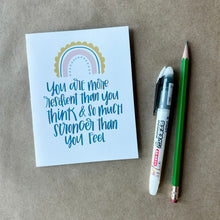 you are more
resilient than you
think & so much
stronger than
you feel